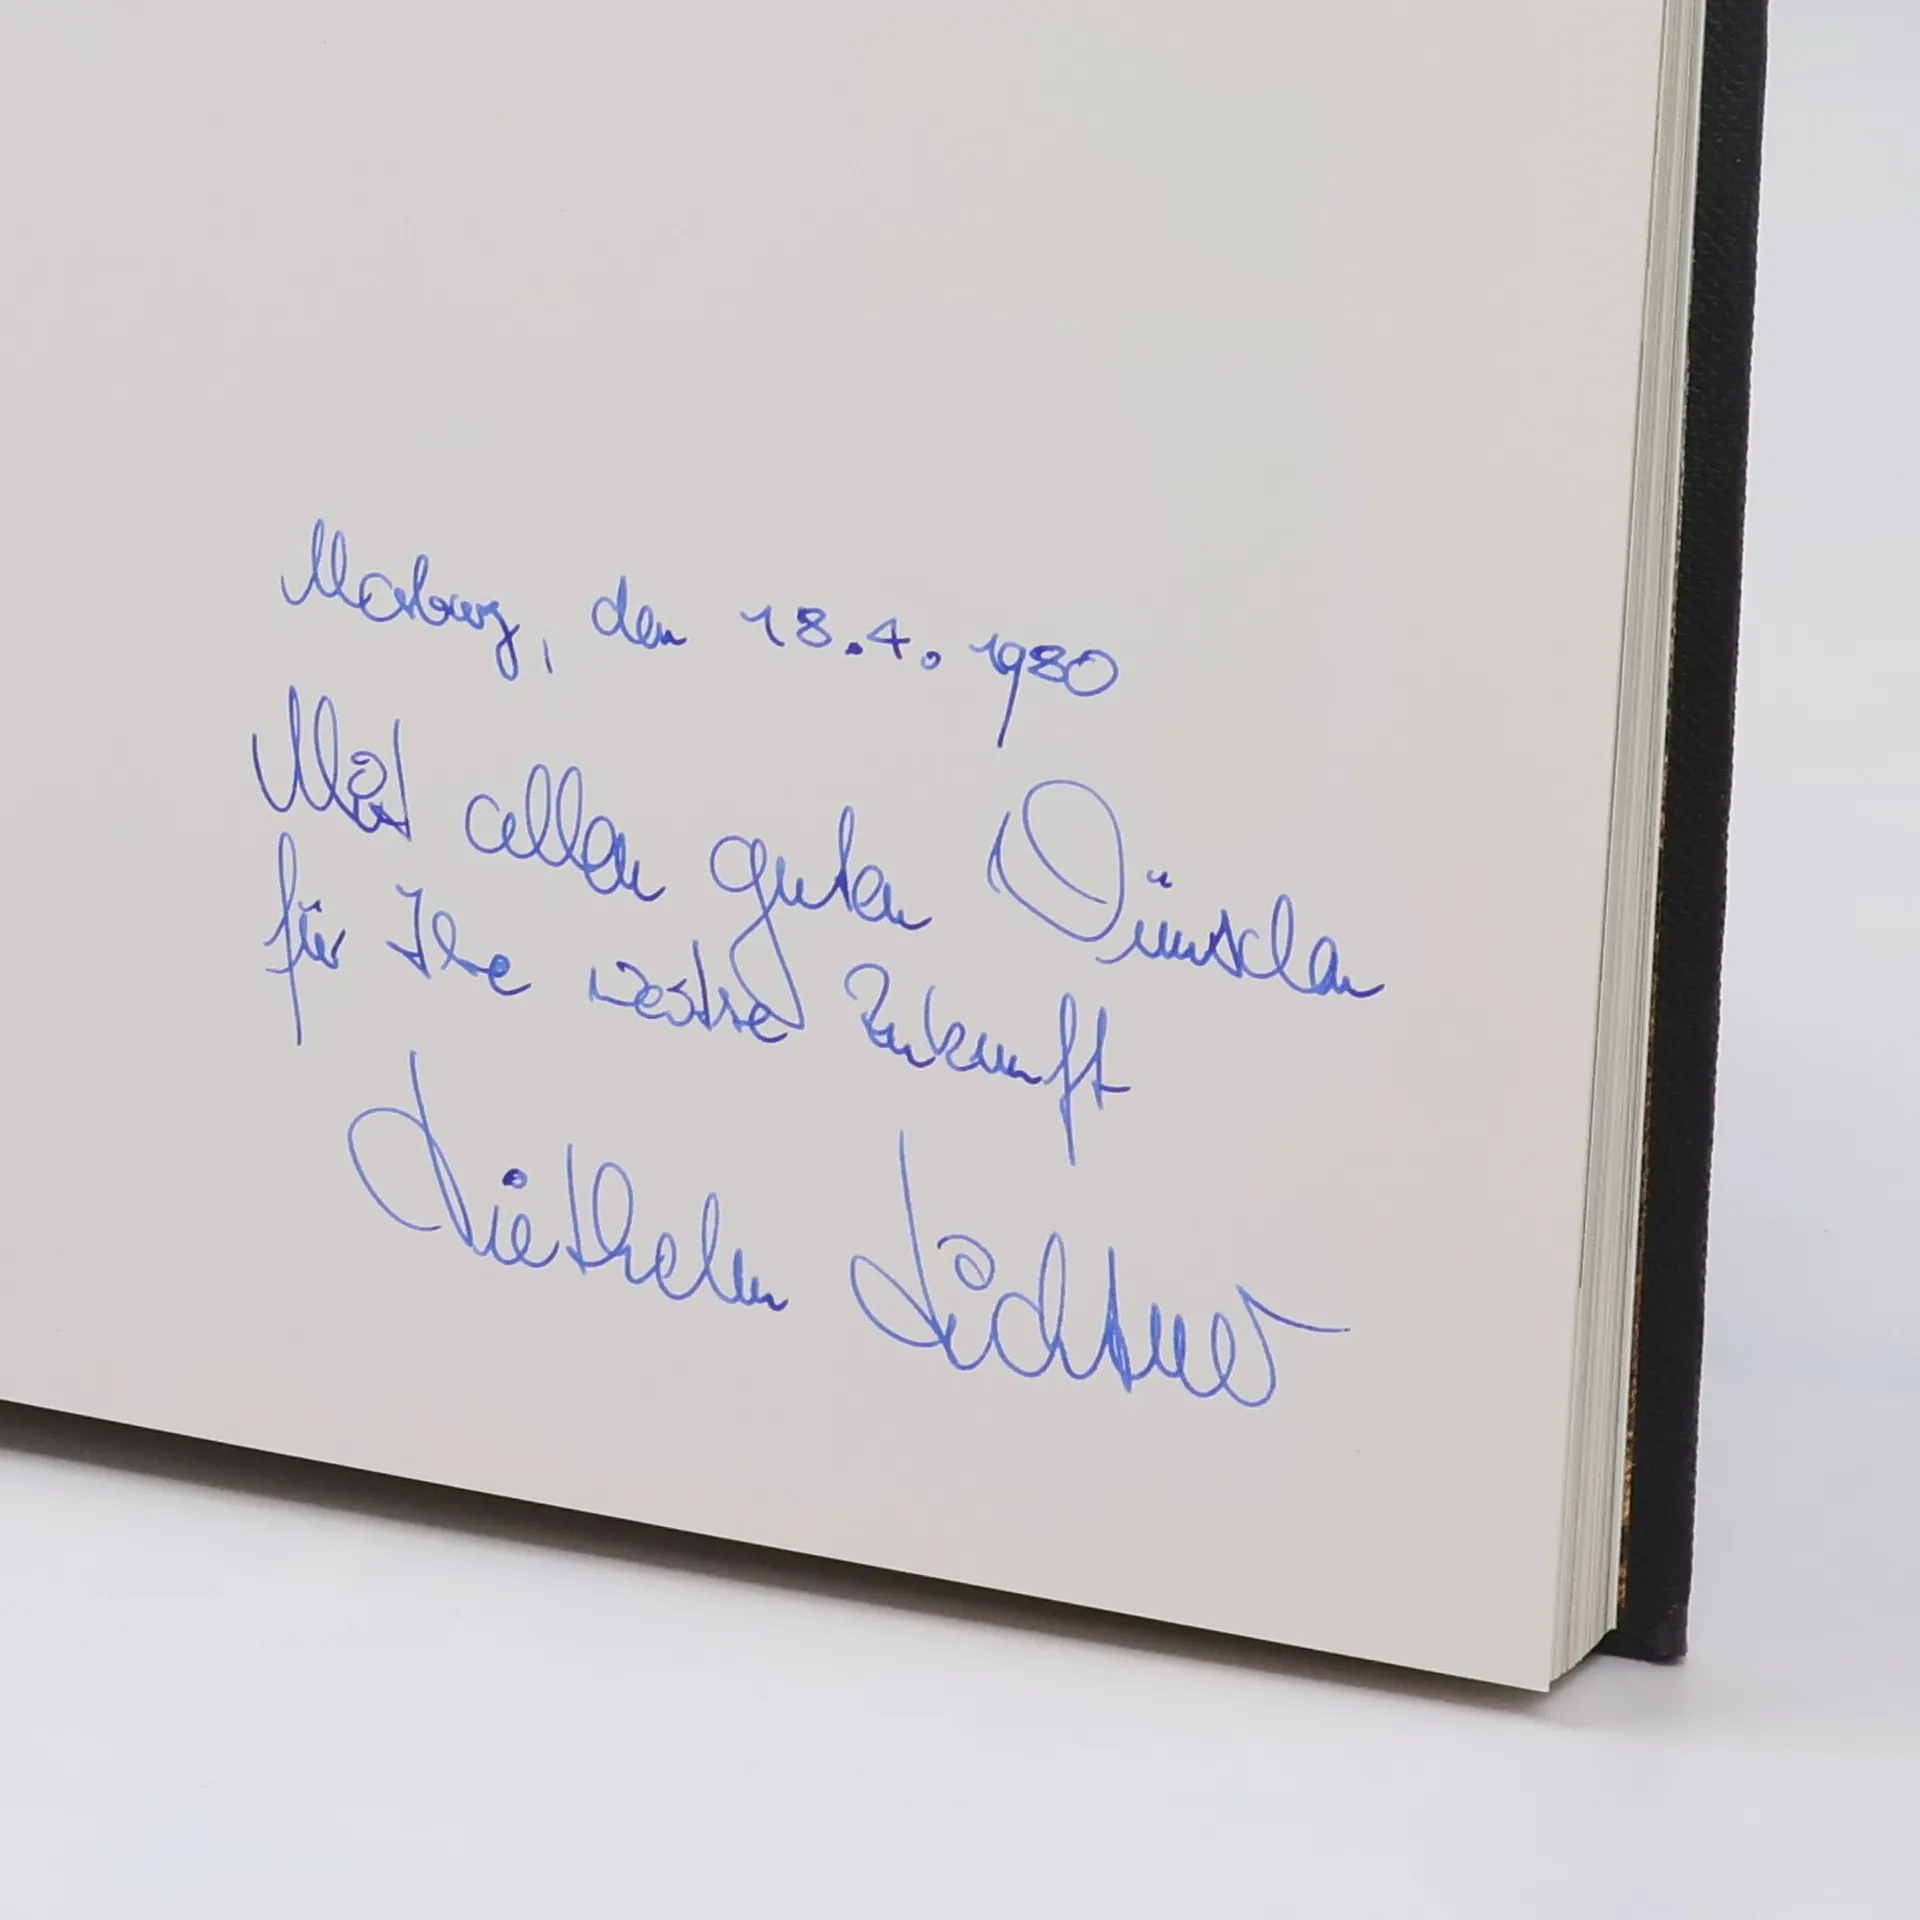 Marburg, den 18.4.1980
Mit allen guten Wünschen
für Ihre weitere Zukunft
Diethelm Lichtner